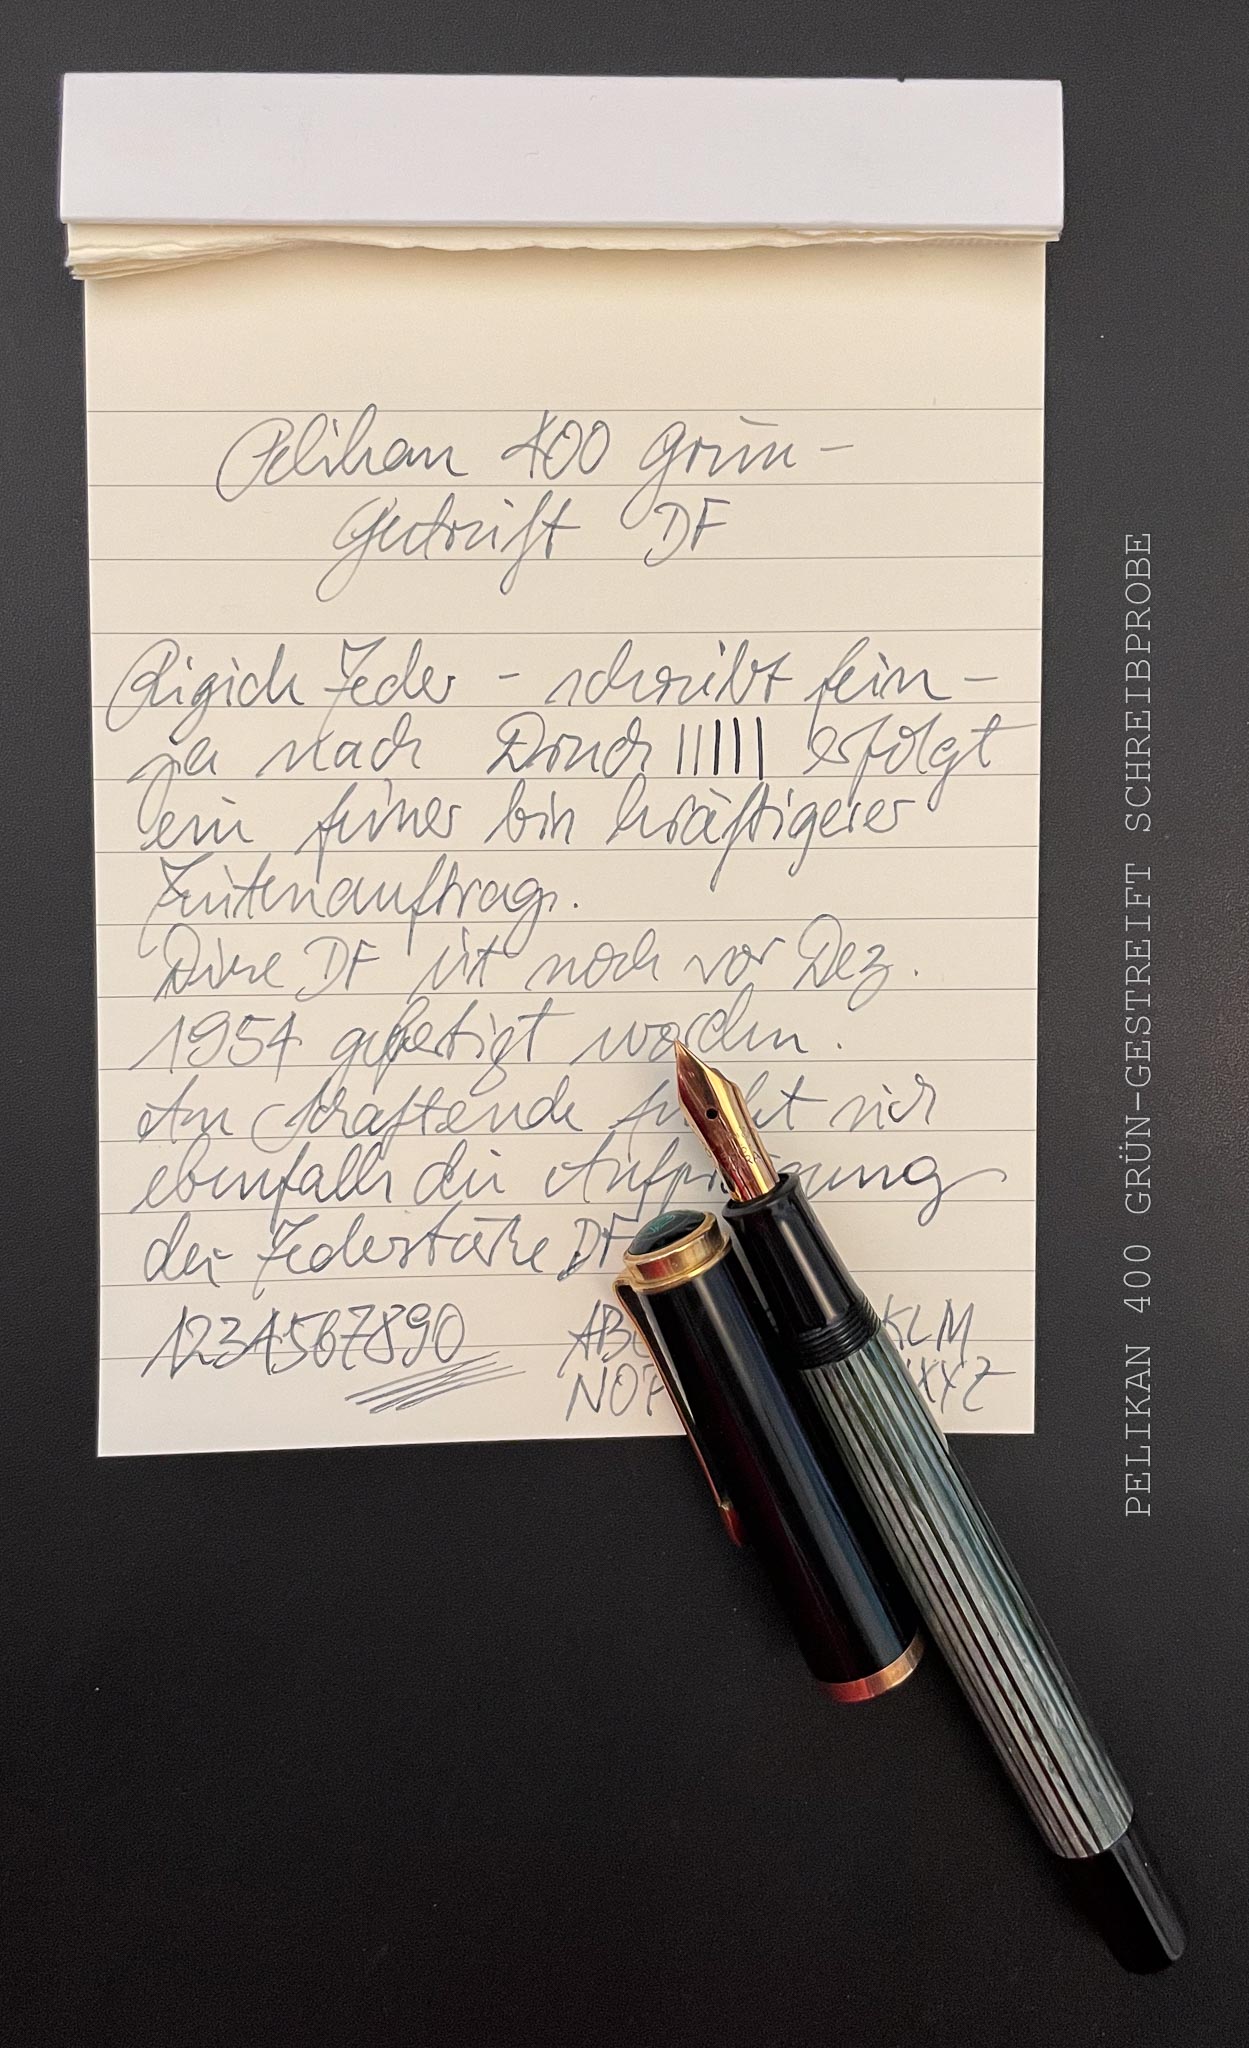 Pelikan 400 Grün-
Gestreift DF
Rigide Feder - schreibt fein -
je nach Druck ||||| erfolgt
ein feiner bis kräftigerer
Tintenauftrag.
Diese DF ist noch vor Dez.
1954 gefertigt worden.
Am Schaftende sich
ebenfalls die
der Federstärke DF
1234567890 AB KLM
NOP XYZ
PELIKAN 400 GRÜN-GESTREIFT SCHREIBPROBE